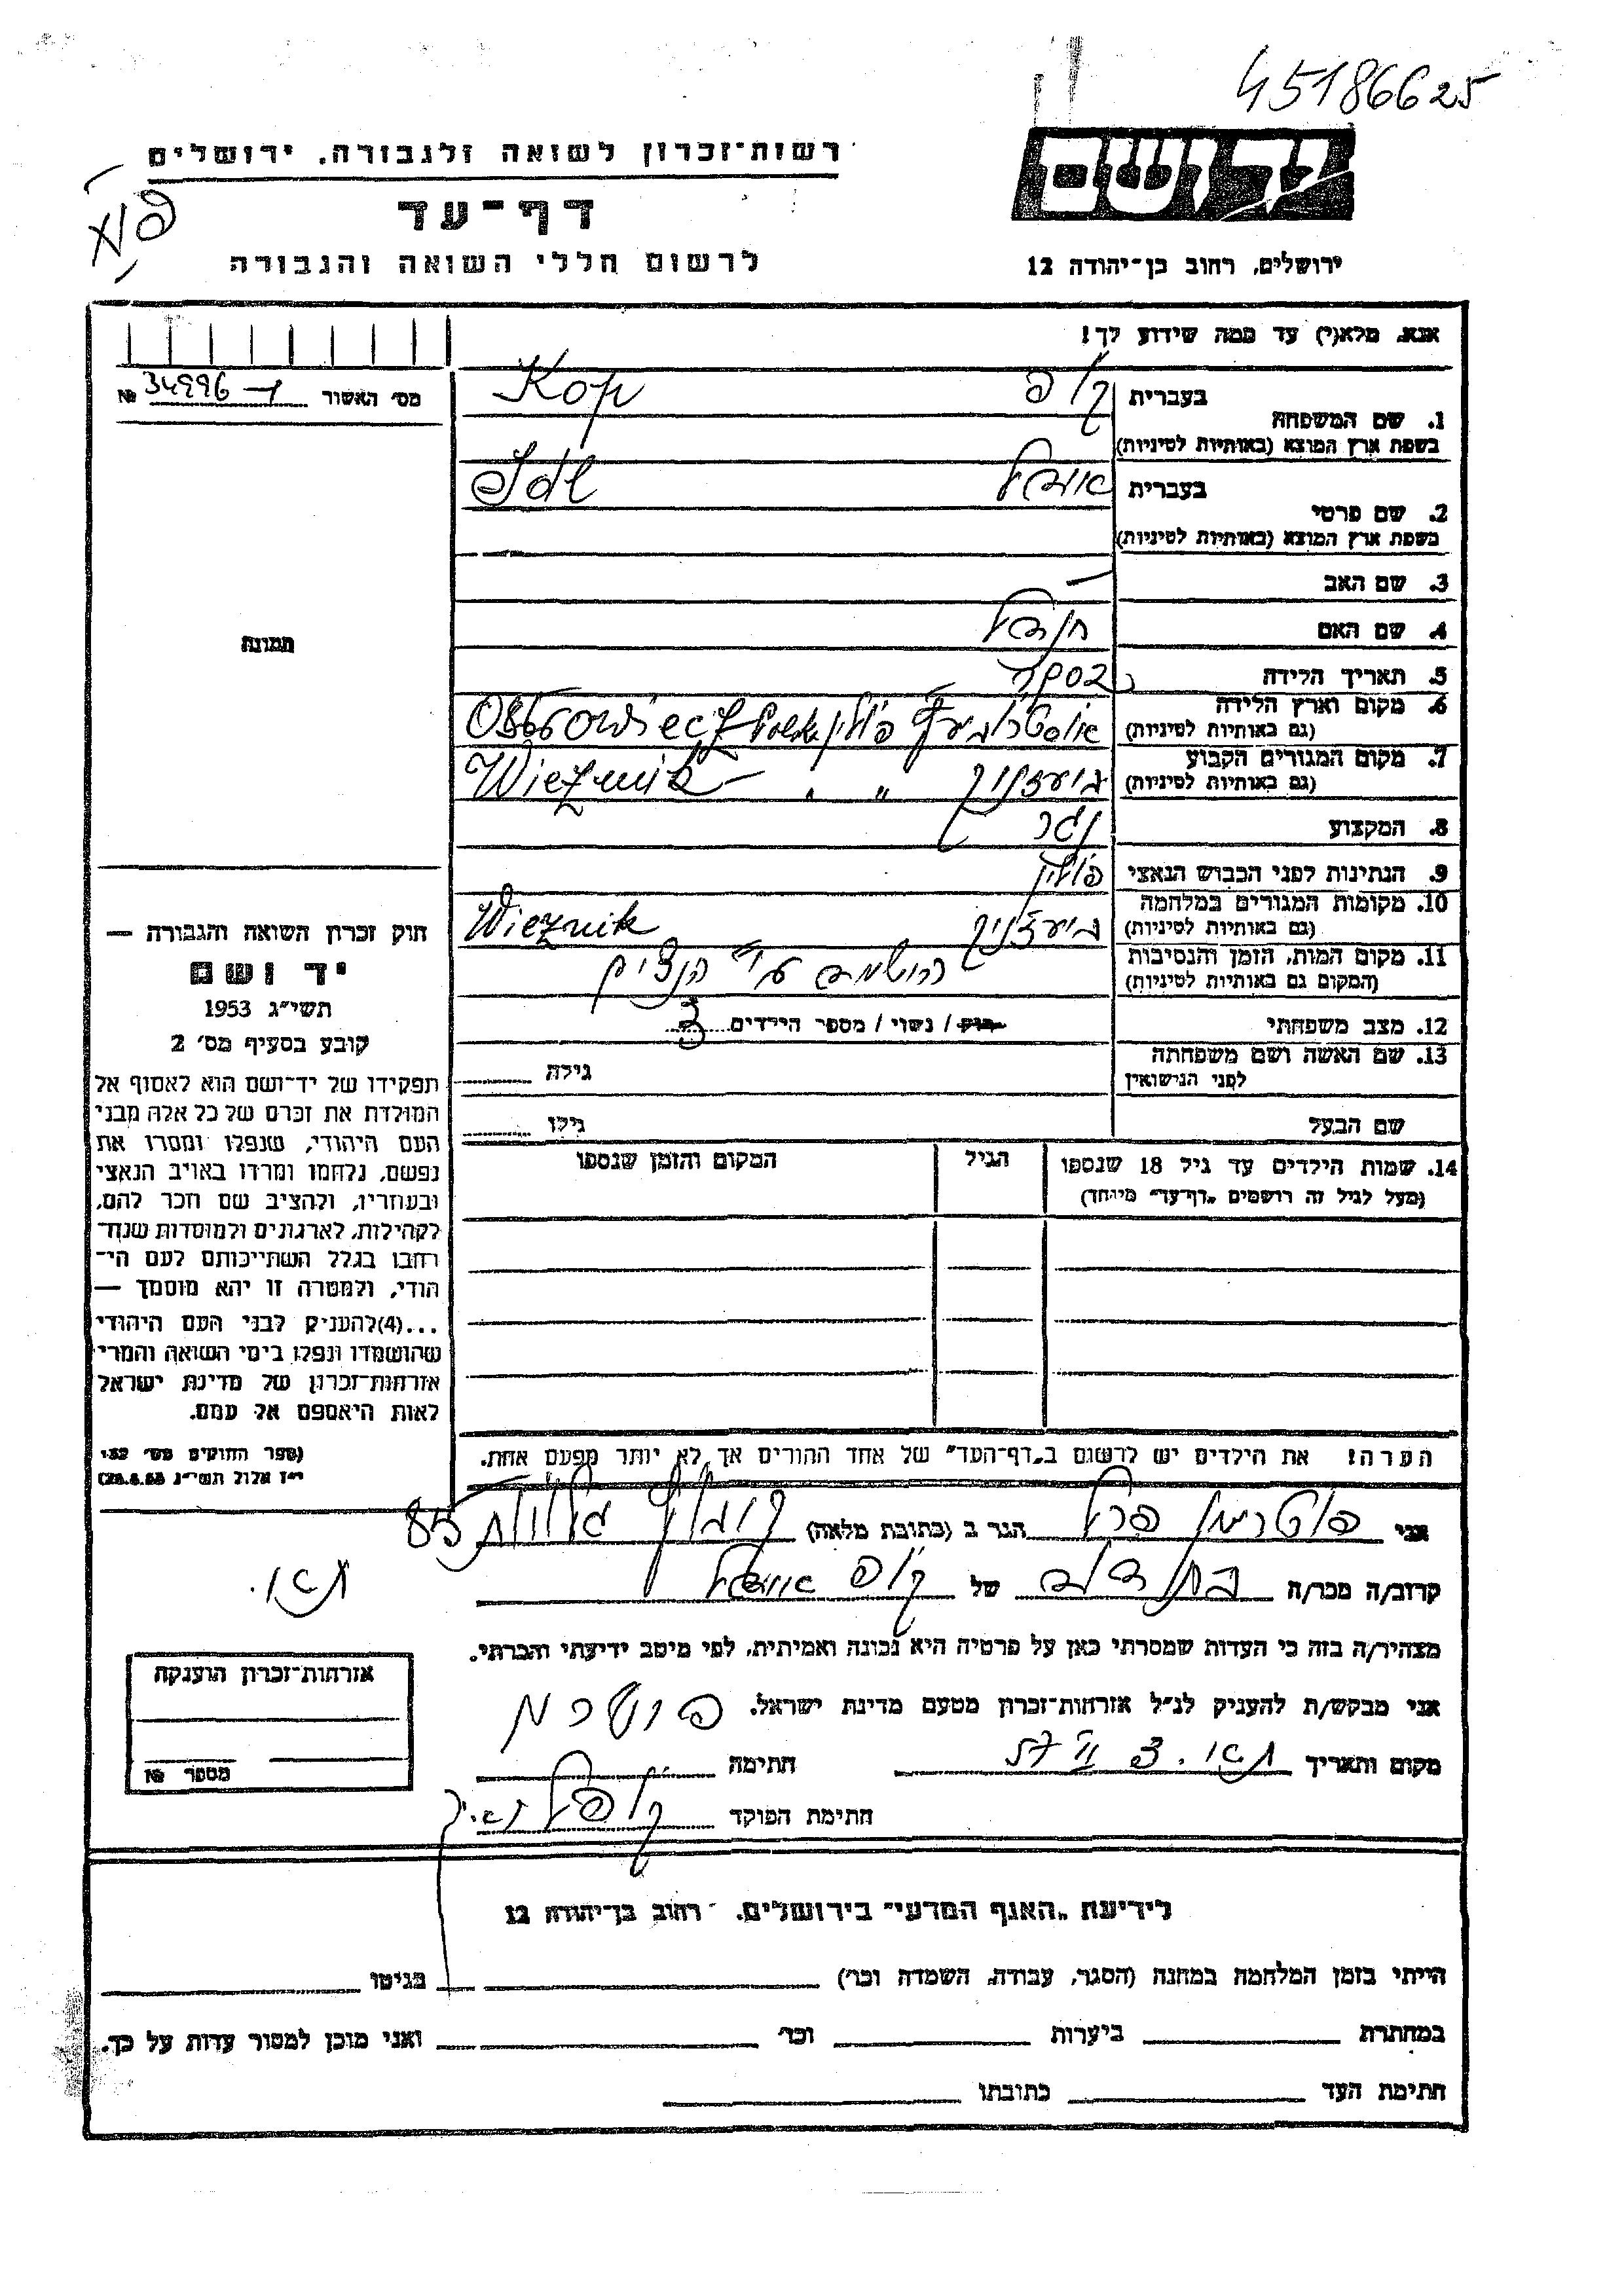 45186625
רשות-זכרון לשואה ולגבורה, ירושלים
יד ושם
דף-עד
לרשום חללי השואה והגבורה
ירושלים, רחוב בן-יהודה 12
אנא, מלא(י) עד כמה שידוע לך!
מס' האשור 34996 №
1. שם המשפחה בעברית קופ
בשפת ארץ המוצא (באותיות לטיניות) Kop
2. שם פרטי בעברית
בשפת ארץ המוצא (באותיות לטיניות) Idl
3. שם האב —
4. שם האם
תמונה
5. תאריך הלידה
6. מקום וארץ הלידה (גם באותיות לטיניות) פולין
7. מקום המגורים הקבוע (גם באותיות לטיניות) " " Wieznik
8. המקצוע נגר
9. הנתינות לפני הכבוש הנאצי פולין
10. מקומות המגורים במלחמה (גם באותיות לטיניות) Wieznik
11. מקום המות, הזמן והנסיבות (המקום גם באותיות לטיניות) הושמד ע"י הנצים
12. מצב משפחתי רווק / נשוי / מספר הילדים 3
13. שם האשה ושם משפחתה לפני הנישואין גילה
שם הבעל גילו
14. שמות הילדים עד גיל 18 שנספו הגיל המקום והזמן שנספו
(מעל לגיל זה רושמים "דף-עד" מיוחד)
חוק זכרון השואה והגבורה —
יד ושם
תשי"ג 1953
קובע בסעיף מס' 2
תפקידו של יד-ושם הוא לאסוף אל
המולדת את זכרם של כל אלה מבני
העם היהודי, שנפלו ומסרו את
נפשם, נלחמו ומרדו באויב הנאצי
ובעוזריו, ולהציב שם וזכר להם,
לקהילות, לארגונים ולמוסדות שנח-
רבו בגלל השתייכותם לעם הי-
הודי, ולמטרה זו יהא מוסמך —
...(4)להעניק לבני העם היהודי
שהושמדו ונפלו בימי השואה והמרי
אזרחות-זכרון של מדינת ישראל
לאות היאספם אל עמם.
(ספר החוקים מס' 132
י"ז אלול תשי"ג 28.8.53)
הערה! את הילדים יש לרשום ב"דף-העד" של אחד ההורים אך לא יותר מפעם אחת.
אני פוטרמן פרל הגר ב (כתובת מלאה) קבוץ גלויות 85
ת"א.
קרוב/ה מכר/ה בת דוד של קופ
מצהיר/ה בזה כי העדות שמסרתי כאן על פרטיה היא נכונה ואמיתית, לפי מיטב ידיעתי והכרתי.
אני מבקש/ת להעניק לנ"ל אזרחות-זכרון מטעם מדינת ישראל.
מקום ותאריך ת"א. חתימה פוטרמן
חתימת הפוקד
אזרחות-זכרון הוענקה
מספר №
לידיעת "האגף המדעי" בירושלים, רחוב בן-יהודה 12
הייתי בזמן המלחמה במחנה (הסגר, עבודה, השמדה וכו') בגיטו
במחתרת ביערות וכו' ואני מוכן למסור עדות על כך.
חתימת העד כתובתו